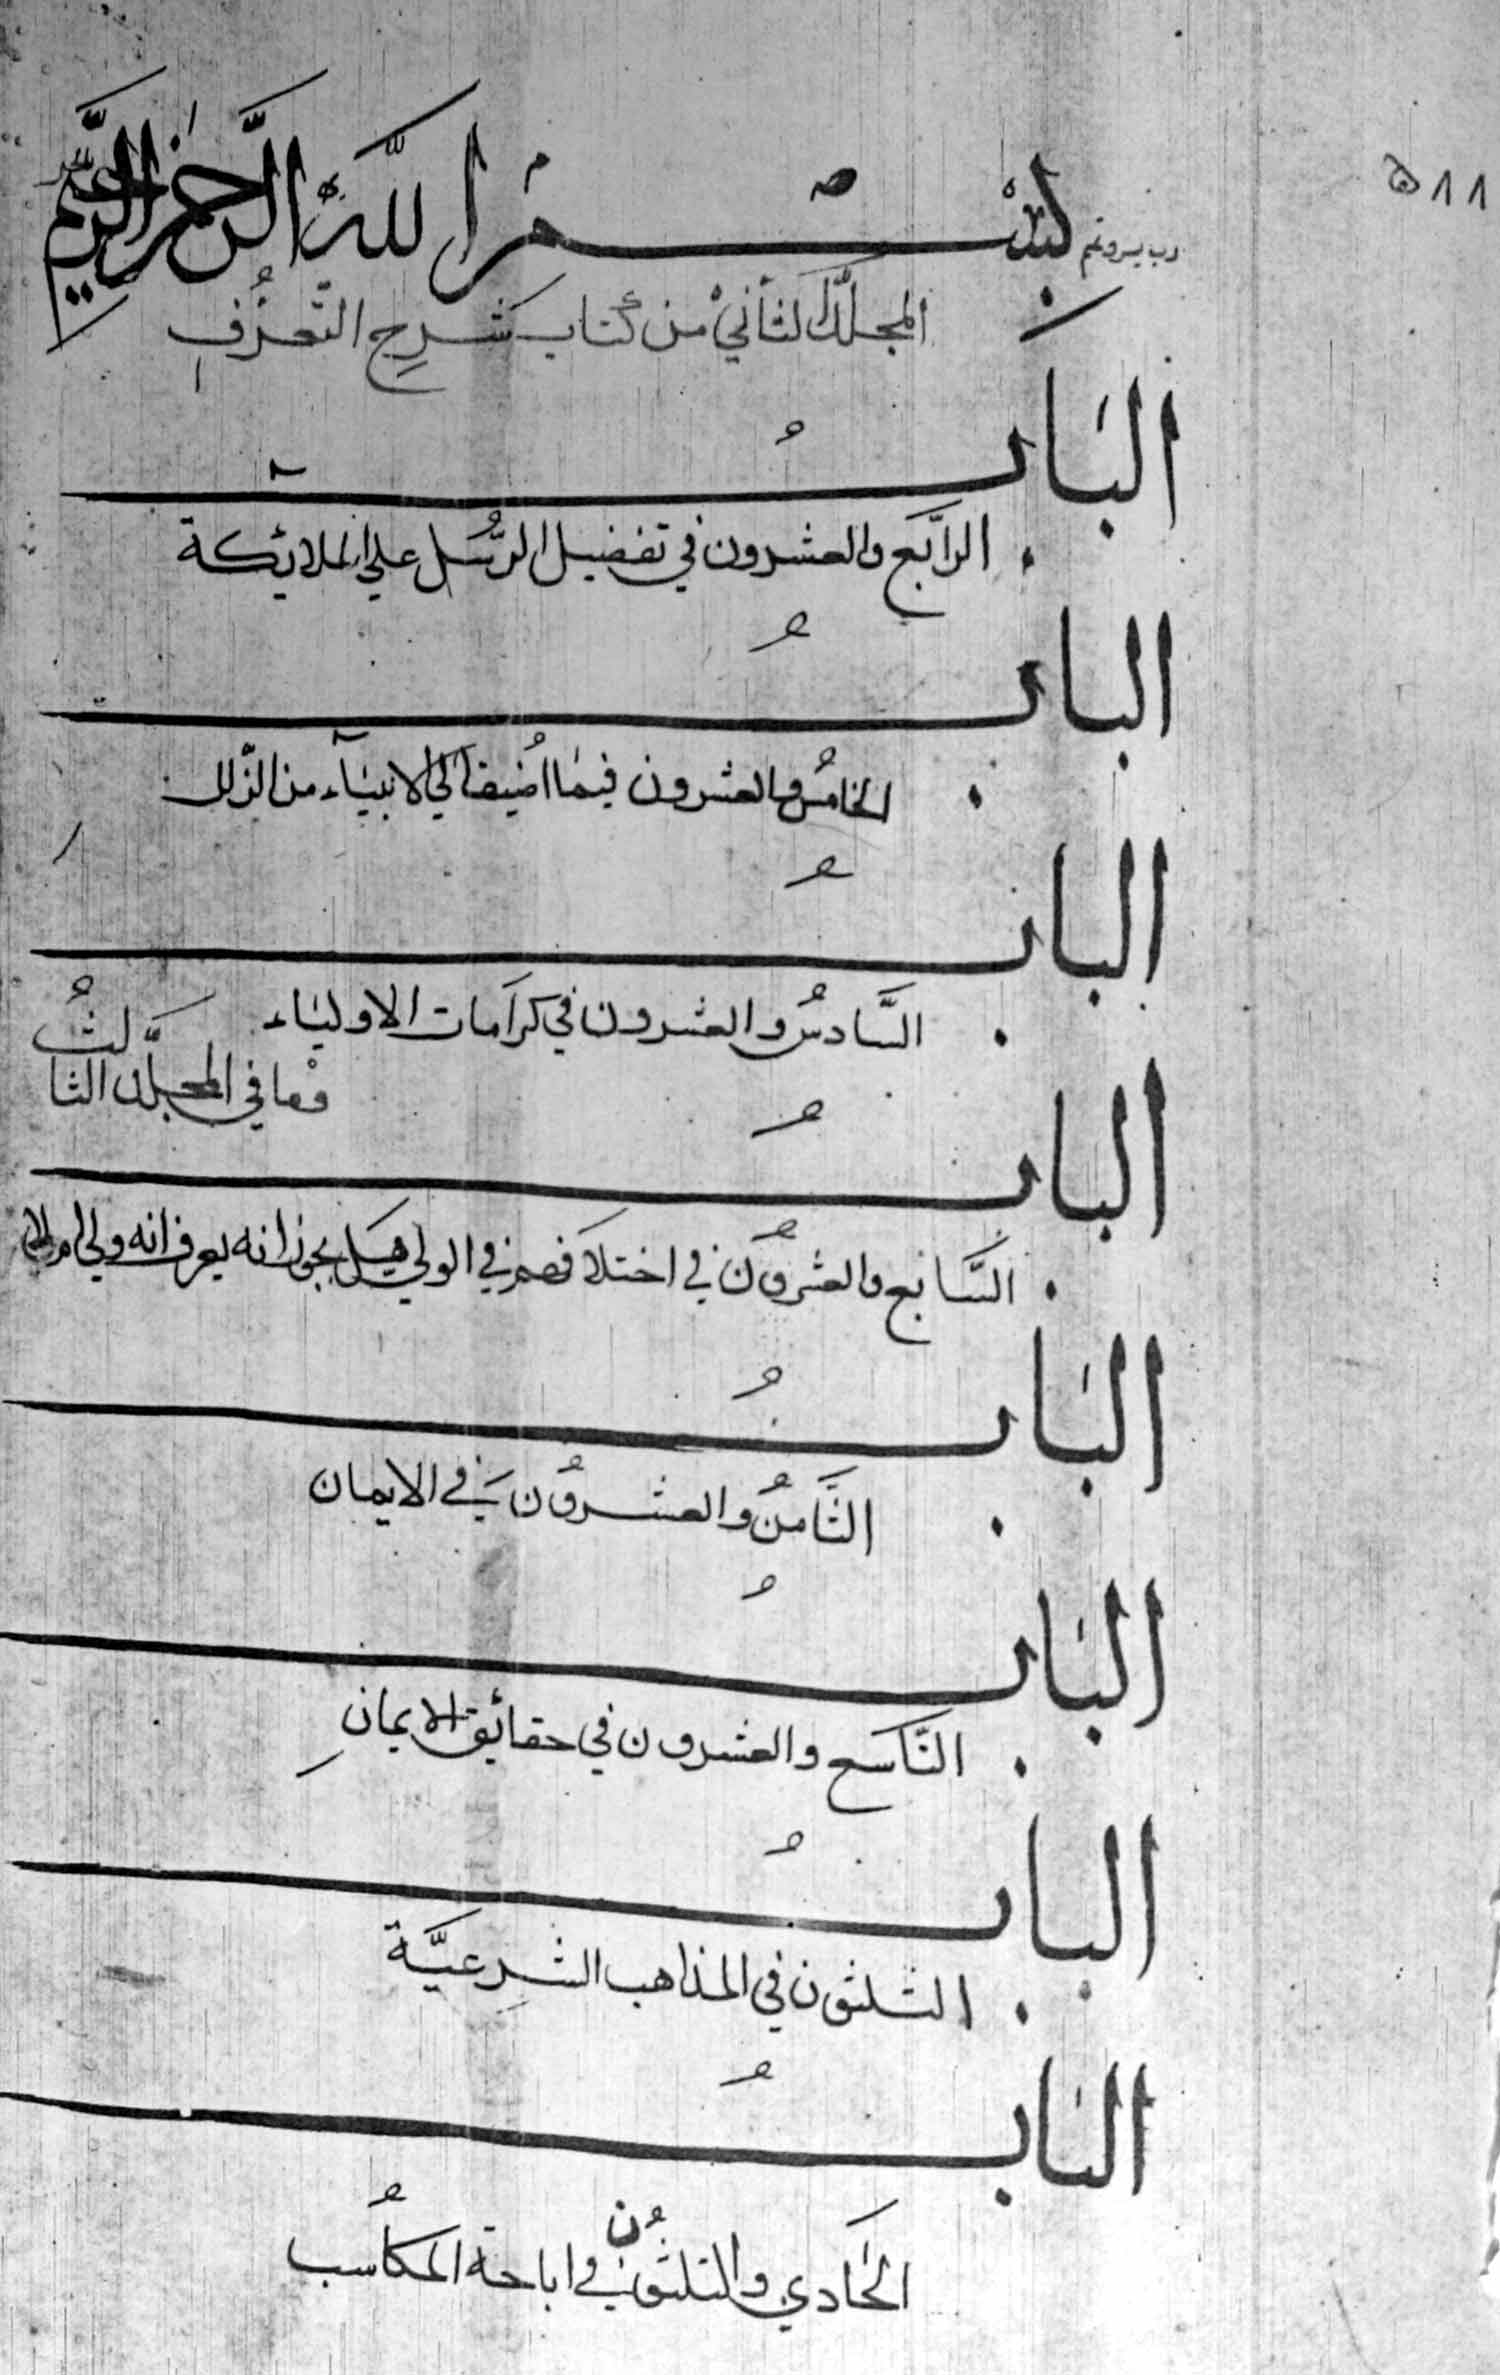 ٥٨٨
رب يسر وتمم
بِسْمِ اللَّهِ الرَّحْمٰنِ الرَّحِيمِ
المجلّد الثاني من كتاب شرح التّعرّف
البَابُ
الرابع والعشرون في تفضيل الرّسل على الملائكة
البابُ
الخامس والعشرون فيما اُضيف الى الانبيآء من الزّلل
البابُ
السّادسُ والعشرون في كرامات الاولياء
وما في المجلّد الثالث
البابُ
السّابع والعشرون في اختلافهم في الولي هل يجوز انه يعرف انه ولي ام لا
البَابُ
الثّامنُ والعشرون في الايمان
البَابُ
التّاسع والعشرون في حقائق الايمان
البابُ
الثلثون في المذاهب الشرعيّة
البَابُ
الحَادي والثلثون في اباحة المكاسب